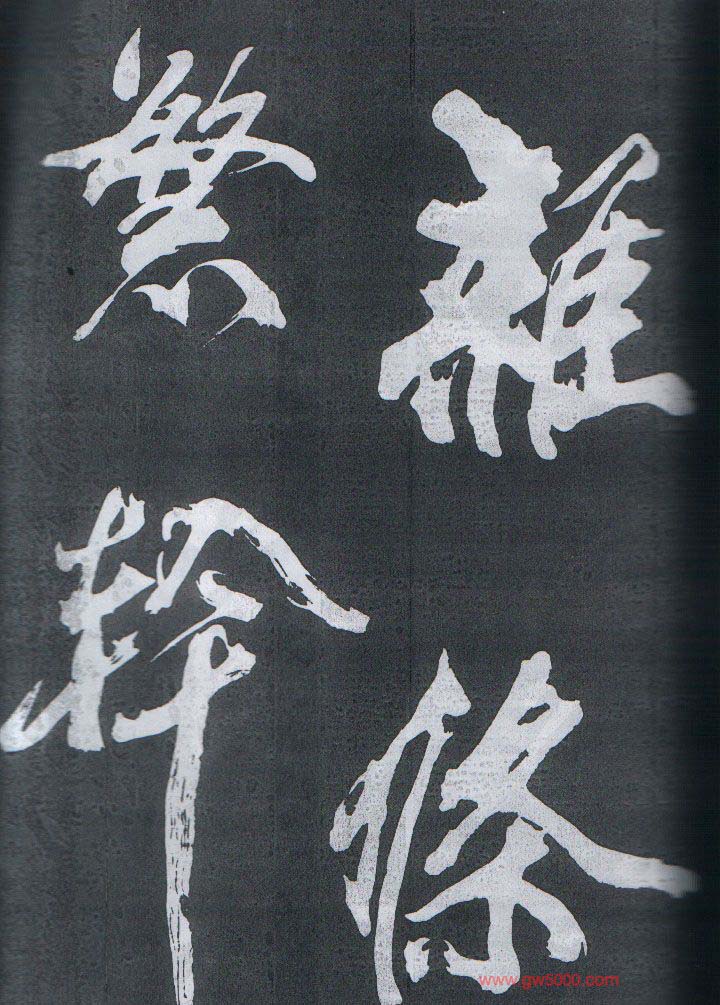 離條
繁幹
www.gw5000.com